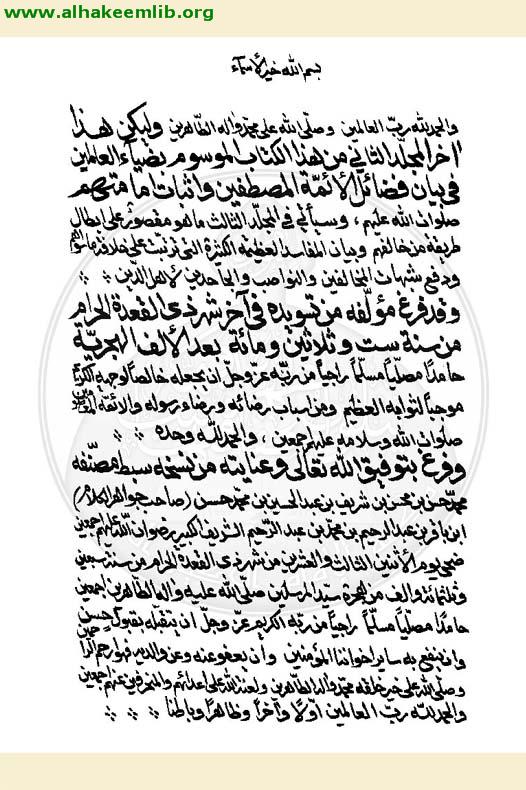 www.alhakeemlib.org
بسم الله خير الأسماء
والحمد لله ربّ العالمين وصلّى الله على محمّد وآله الطاهرين وليكن هذا
آخر المجلّد الثاني من هذا الكتاب الموسوم بضياء العالمين
في بيان فضائل الأئمّة المصطفين وإثبات إمامتهم
صلوات الله عليهم ، وسيأتي في المجلّد الثالث ما هو مقصور على إبطال
طريقة من خالفهم وبيان المفاسد العظيمة الكثيرة التي ترتبت على خلافة
ودفع شبهات المخالفين والنواصب والجاحدين لأهل الدّين
وقد فرغ مؤلّفه من تسويده في آخر شهر ذي القعدة الحرام
من سنة ست وثلاثين ومائة بعد الألف الهجريّة
حامدًا مصلّيًا مسلّمًا راجيًا من ربّه عزّ وجلّ ان يجعله خالصًا لوجهه الكريم
موجبًا لثوابه العظيم ومن أسباب رضائه ورضاء رسوله والأئمّة
صلوات الله وسلامه عليهم أجمعين ، والحمد لله وحده
وفرغ بتوفيق الله تعالى وعنايته من نسخه سبط مصنّفه
محمّد حسن بن شريف بن عبد الحسين بن محمّد حسن (صاحب جواهر الكلام)
ابن باقر بن عبد الرحيم بن محمّد بن عبد الرّحيم الشريف الكبير رضوان الله عليهم أجمعين
ضحى يوم الأثنين الثالث والعشرين من شهر ذي القعدة الحرام من سنة سبعين
وثلثمائة وألف من هجرة سيد المرسلين صلّى الله عليه وآله الطاهرين أجمعين
حامدًا مصلّيًا مسلّمًا راجيًا من ربّه الكريم عزّ وجلّ ان يتقبّله بقبول حسن
وان ينفع به ساير اخواننا المؤمنين وان يعفو عنه وعن والديه فهو ارحم الراحمين
وصلّى الله على خير خلقه محمّد وآله الطاهرين ولعنة الله على أعدائهم والمنحرفين عنهم أجمعين
والحمد لله ربّ العالمين أوّلًا وآخرًا وظاهرًا وباطنًا